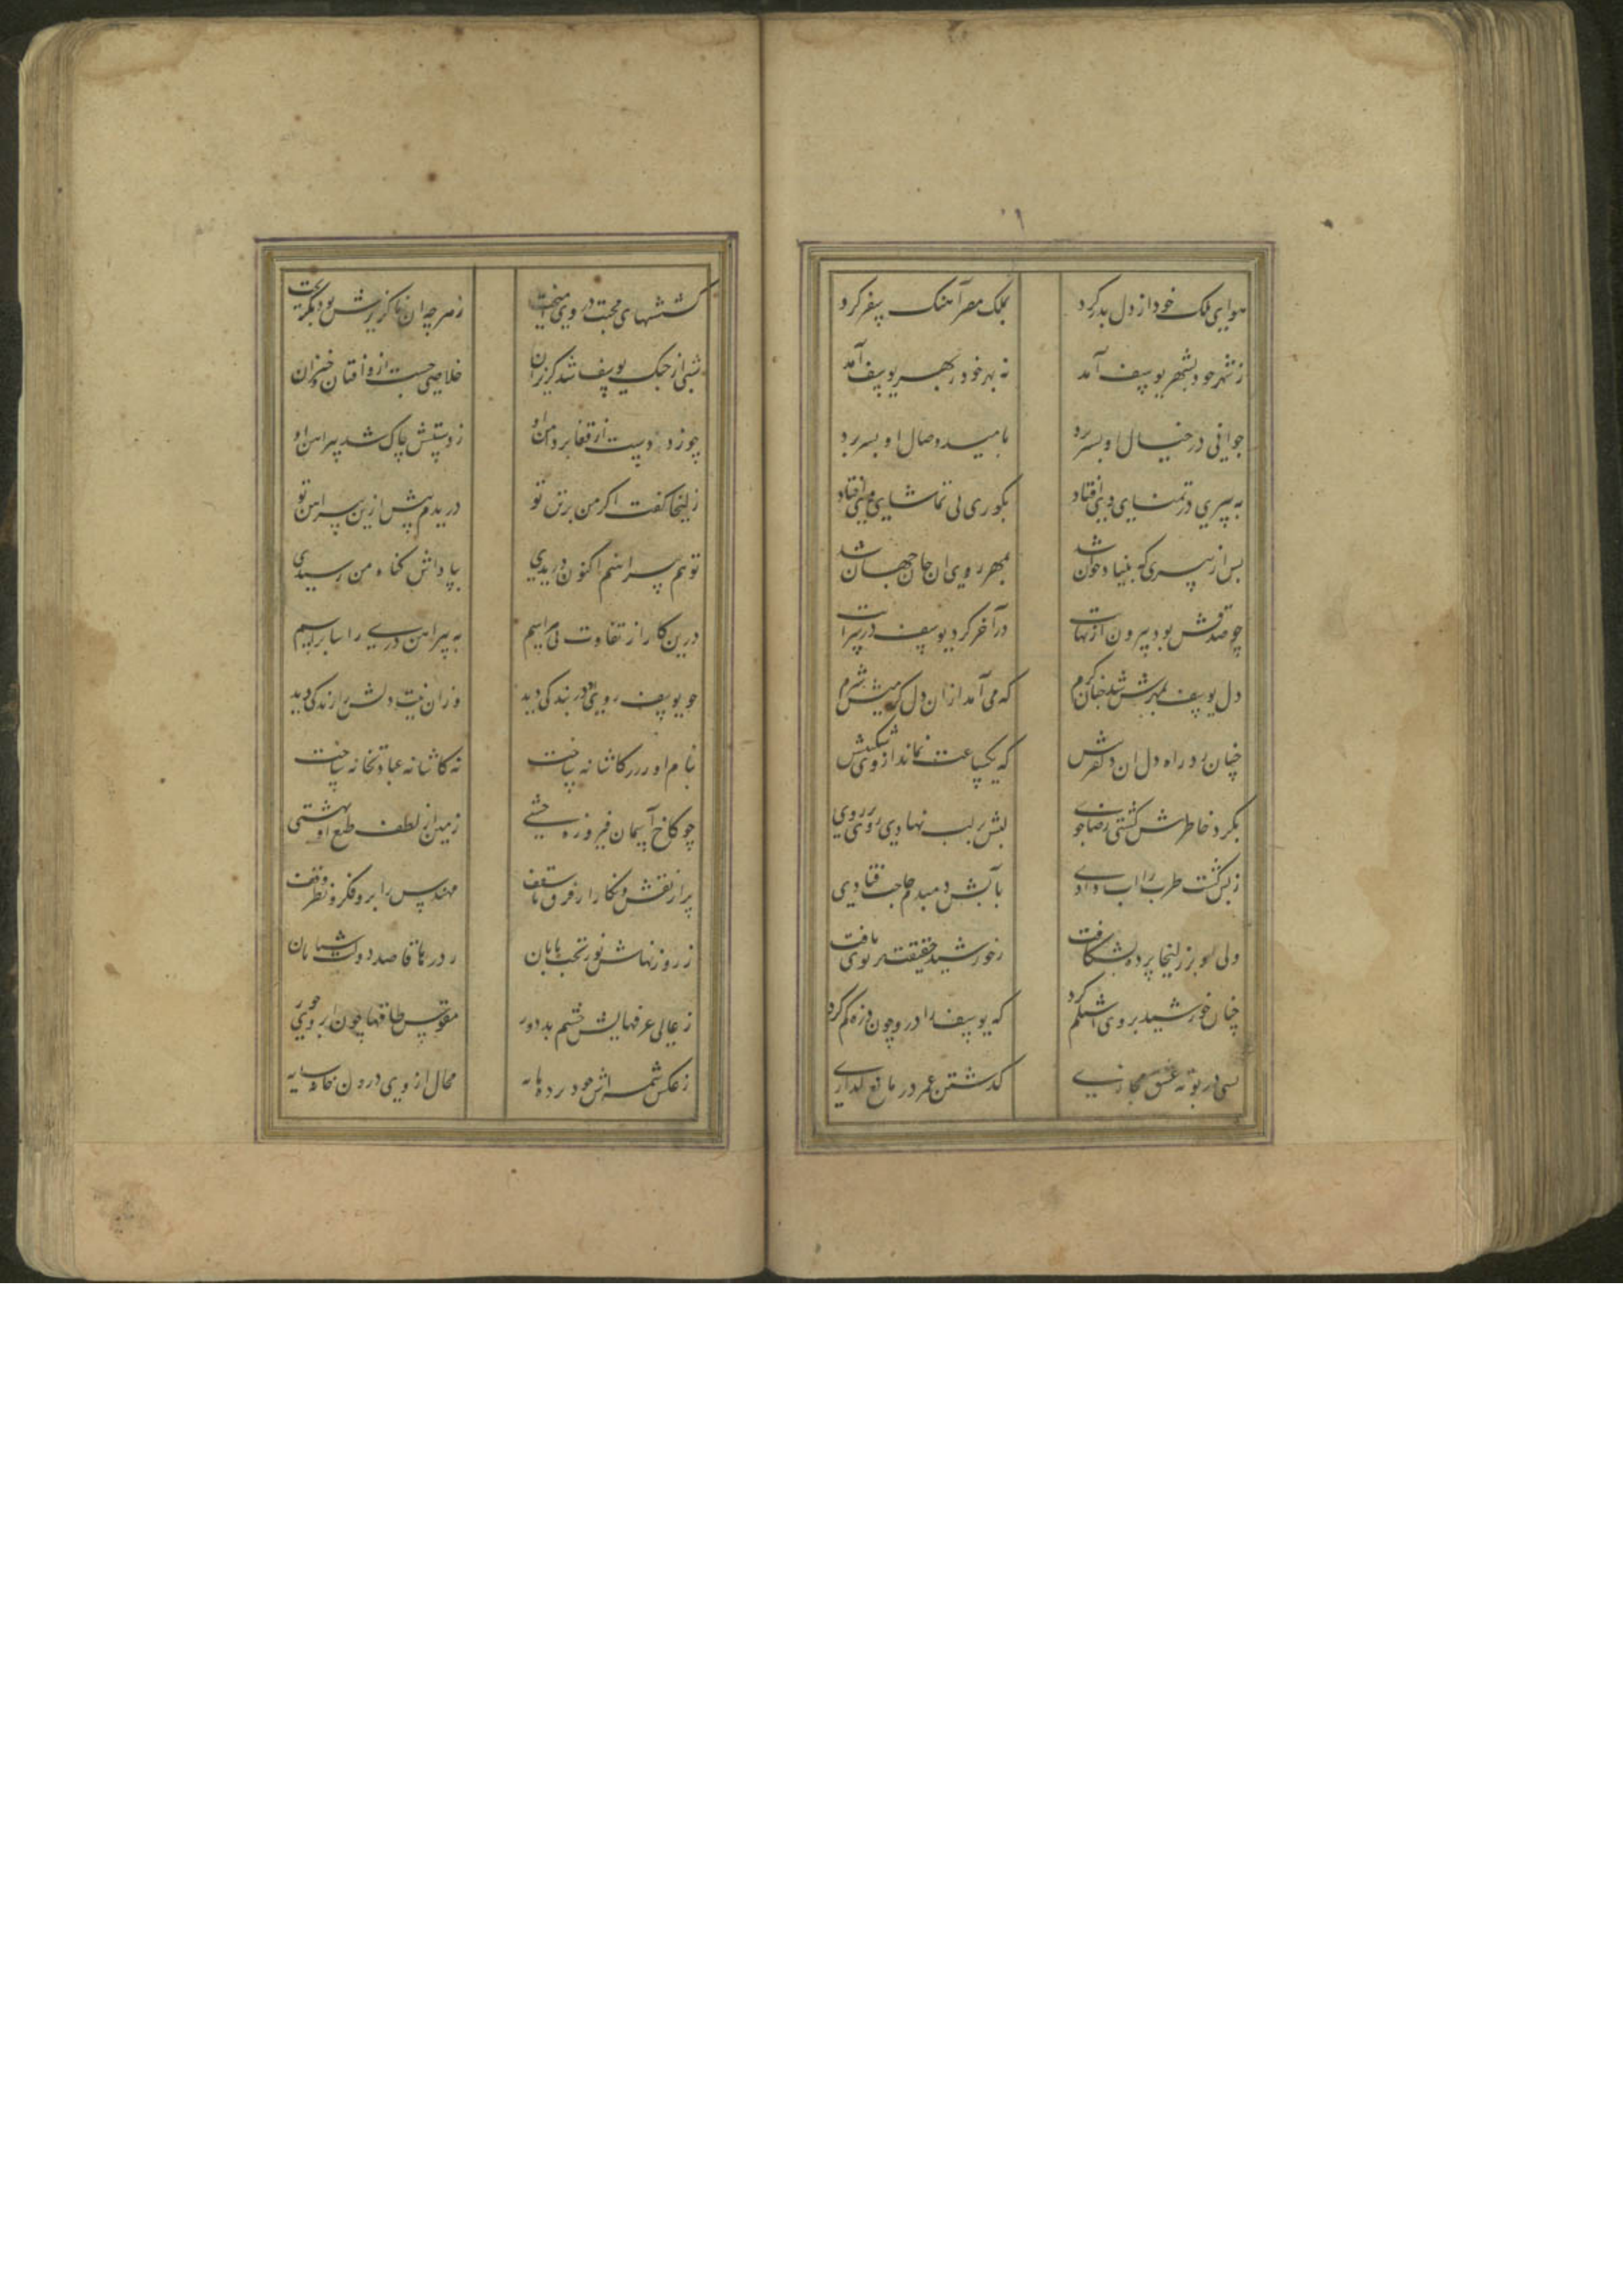 هوای ملک خود از دل بدر کرد
بملک مصر آهنک سفر کرد
ز شهر خود بشهر یوسف آمد
نه بهر خود که بهر یوسف آمد
جوانی در خیال او بسر برد
بامید وصال او بسر برد
به پیری در تمنای وی افتاد
بکوری بی تماشای وی افتاد
پس از پیری که بینا و جوان شد
بمهر روی آن جان جهان شد
چو صدقش بود بیرون از نهایت
در آخر کرد در یوسف سرایت
دل یوسف بمهرش شد چنان کرم
که می آمد از آن دل کرمیش شرم
چنان برد راه دل آن دلفریبش
که یکساعت نماند از وی شکیبش
بکرد خاطرش کشتی رضاجوی
لبش بر لب نهادی روی بر روی
ز بس کشت طرب را آب دادی
بآبش دمبدم حاجت فتادی
ولی او بر زلیخا پرده بشکافت
ز خورشید حقیقت پرتوی یافت
چنان خورشید بر وی اشتلم کرد
که یوسف را درو چون ذره کم کرد
بسی در بوته عشق مجازی
کذشتن عمر در
کششهای محبت در وی آمیخت
ز هر چه آن ناکزیرش بود بکریخت
شبی از چنک یوسف شد کریزان
خلاصی جست ازو افتان و خیزان
چو زد دست از قفا بر دامن او
ز دستش چاک شد پیراهن او
زلیخا کفت اکر من بر تن تو
دریدم پیش ازین پیراهن تو
تو هم پیراهنم اکنون دریدی
بپاداش کناه من رسیدی
درین کار از تفاوت بی هراسیم
به پیراهن دری راسا براسیم
چو یوسف روی او در بندکی دید
وزان نیت دلش را زندکی دید
بنام او ز زر کاشانه ساخت
نه کاشانه عبادتخانه ساخت
چو کاخ آسمان فیروزه خشتی
زمین از لطف طبع او بهشتی
پر از نقش و نکار از فرق تا سقف
مهندس را برو فکر و نظر وقف
ز روزنهاش نور بخت تابان
ز درها قاصد دولت شتابان
ز عالی غرفهایش چشم بد دور
مقوس طاقها چون ابروی حور
ز عکس شمسه اش خود برده مایه
محال از وی درون خانه سایه